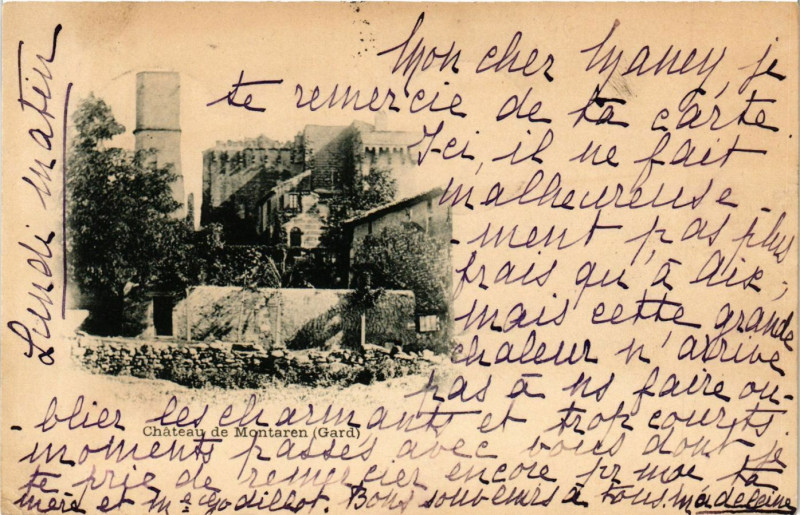 Lundi matin
Mon cher Maney, je
te remercie de ta carte.
Ici, il ne fait
malheureuse-
-ment pas plus
frais qu'à Aix,
mais cette grande
chaleur n'arrive
pas à ns faire ou-
-blier les charmants et trop courts
Château de Montaren (Gard)
moments passés avec vous dont je
te prie de remercier encore pr moi ta
mère et Me Godillot. Bons souvenirs à tous. Madeleine